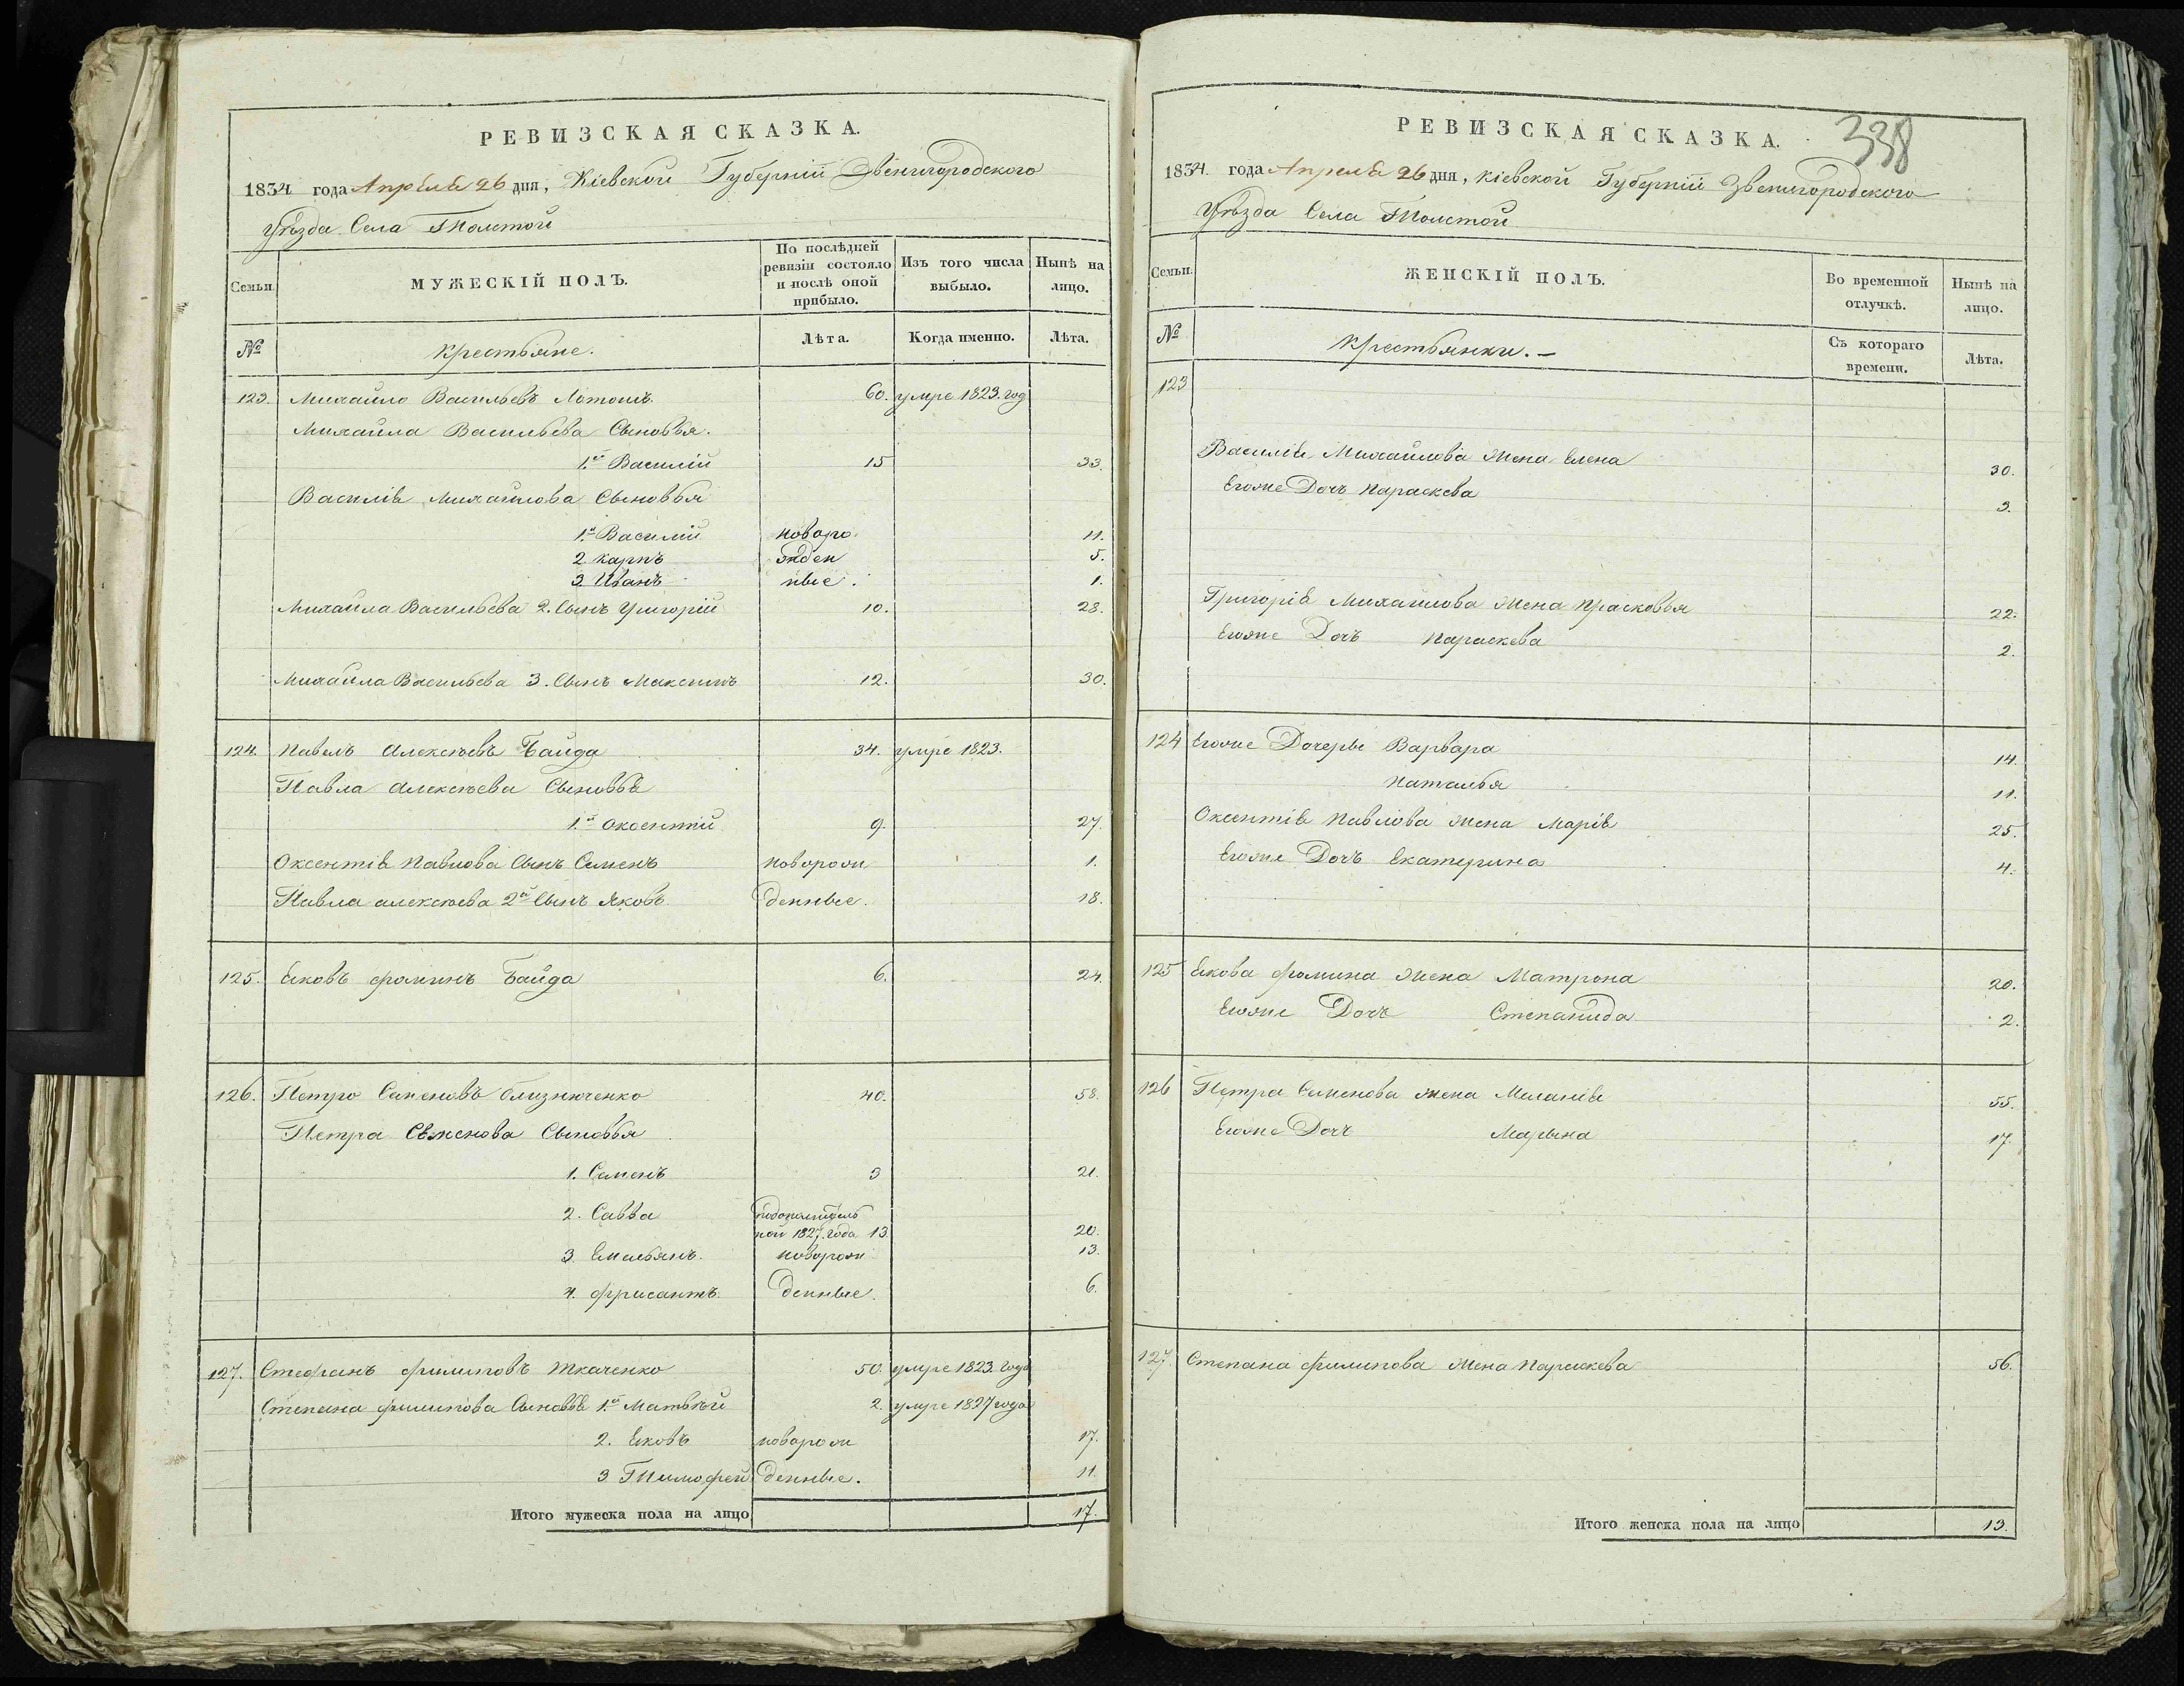 РЕВИЗСКАЯ СКАЗКА.
1834 года Апреля 26 дня, Кіевской Губерніи Звенигородского
уѣзда Села Толстой
Семьи.
МУЖЕСКІЙ ПОЛЪ.
По послѣдней ревизіи состояло и послѣ оной прибыло.
Изъ того числа выбыло.
Нынѣ на лицо.
№
Крестьяне.
Лѣта.
Когда именно.
Лѣта.
123. Михайло Васильевъ Лотошъ. 60. умре 1823. год
Михайла Васильева Сыновья.
1.й Василій 15 33.
Василія Михайлова Сыновья
1.й Василій новоро 11.
2 Карпъ жден 5.
3. Иванъ ные. 1.
Михайла Васильева 2. Сынъ Григорій 10. 28.
Михайла Васильева 3. Сынъ Максимъ 12. 30.
124. Павелъ Алексѣевъ Байда 34. умре 1823.
Павла Алексѣева Сыновья
1.й Оксентій 9. 27.
Оксентія Павлова Сынъ Семенъ новорож 1.
Павла алексѣева 2й Сынъ Яковъ денные. 18.
125. Яковъ фоминъ Байда 6. 24.
126. Петро Семеновъ близнюченко 40. 58.
Петра Семенова Сыновья
1. Семенъ 3 21.
2. Савва подополнитель
ной 1827. года 13 20.
3. Емельянъ. новорож 13.
4. фрисантъ. денные. 6.
127. Стефанъ филиповъ Ткаченко 50. умре 1823. года
Степана филипова Сыновья 1.й Матвѣй 2. умре 1827 года
2. Яковъ новорож 17.
3 Тимофей денные. 11.
Итого мужеска пола на лицо 17.
338
РЕВИЗСКАЯ СКАЗКА.
1834. года Апреля 26 дня, Кіевской Губерніи Звенигородского
Уѣзда Села Толстой
Семьи.
ЖЕНСКІЙ ПОЛЪ.
Во временной отлучкѣ.
Нынѣ на лицо.
№
Крестьянки.-
Съ котораго времени.
Лѣта.
123
Василія Михайлова жена Елена 30.
Егоже Дочъ Параскева 3.
Григорія Михайлова жена Прасковья 22.
Егоже Дочъ Параскева 2.
124 Егоже Дочеры Варвара 14.
Наталья 11.
Оксентія Павлова жена Марія 25.
Егоже Дочъ Екатерина 4.
125 Якова фомина жена Матрона 20.
Егоже Дочъ Степанида 2.
126 Петра Семенова жена Меланія 55.
Егоже Дочъ Марына 17.
127. Степана филипова жена Параскева 56.
Итого женска пола на лицо 13.